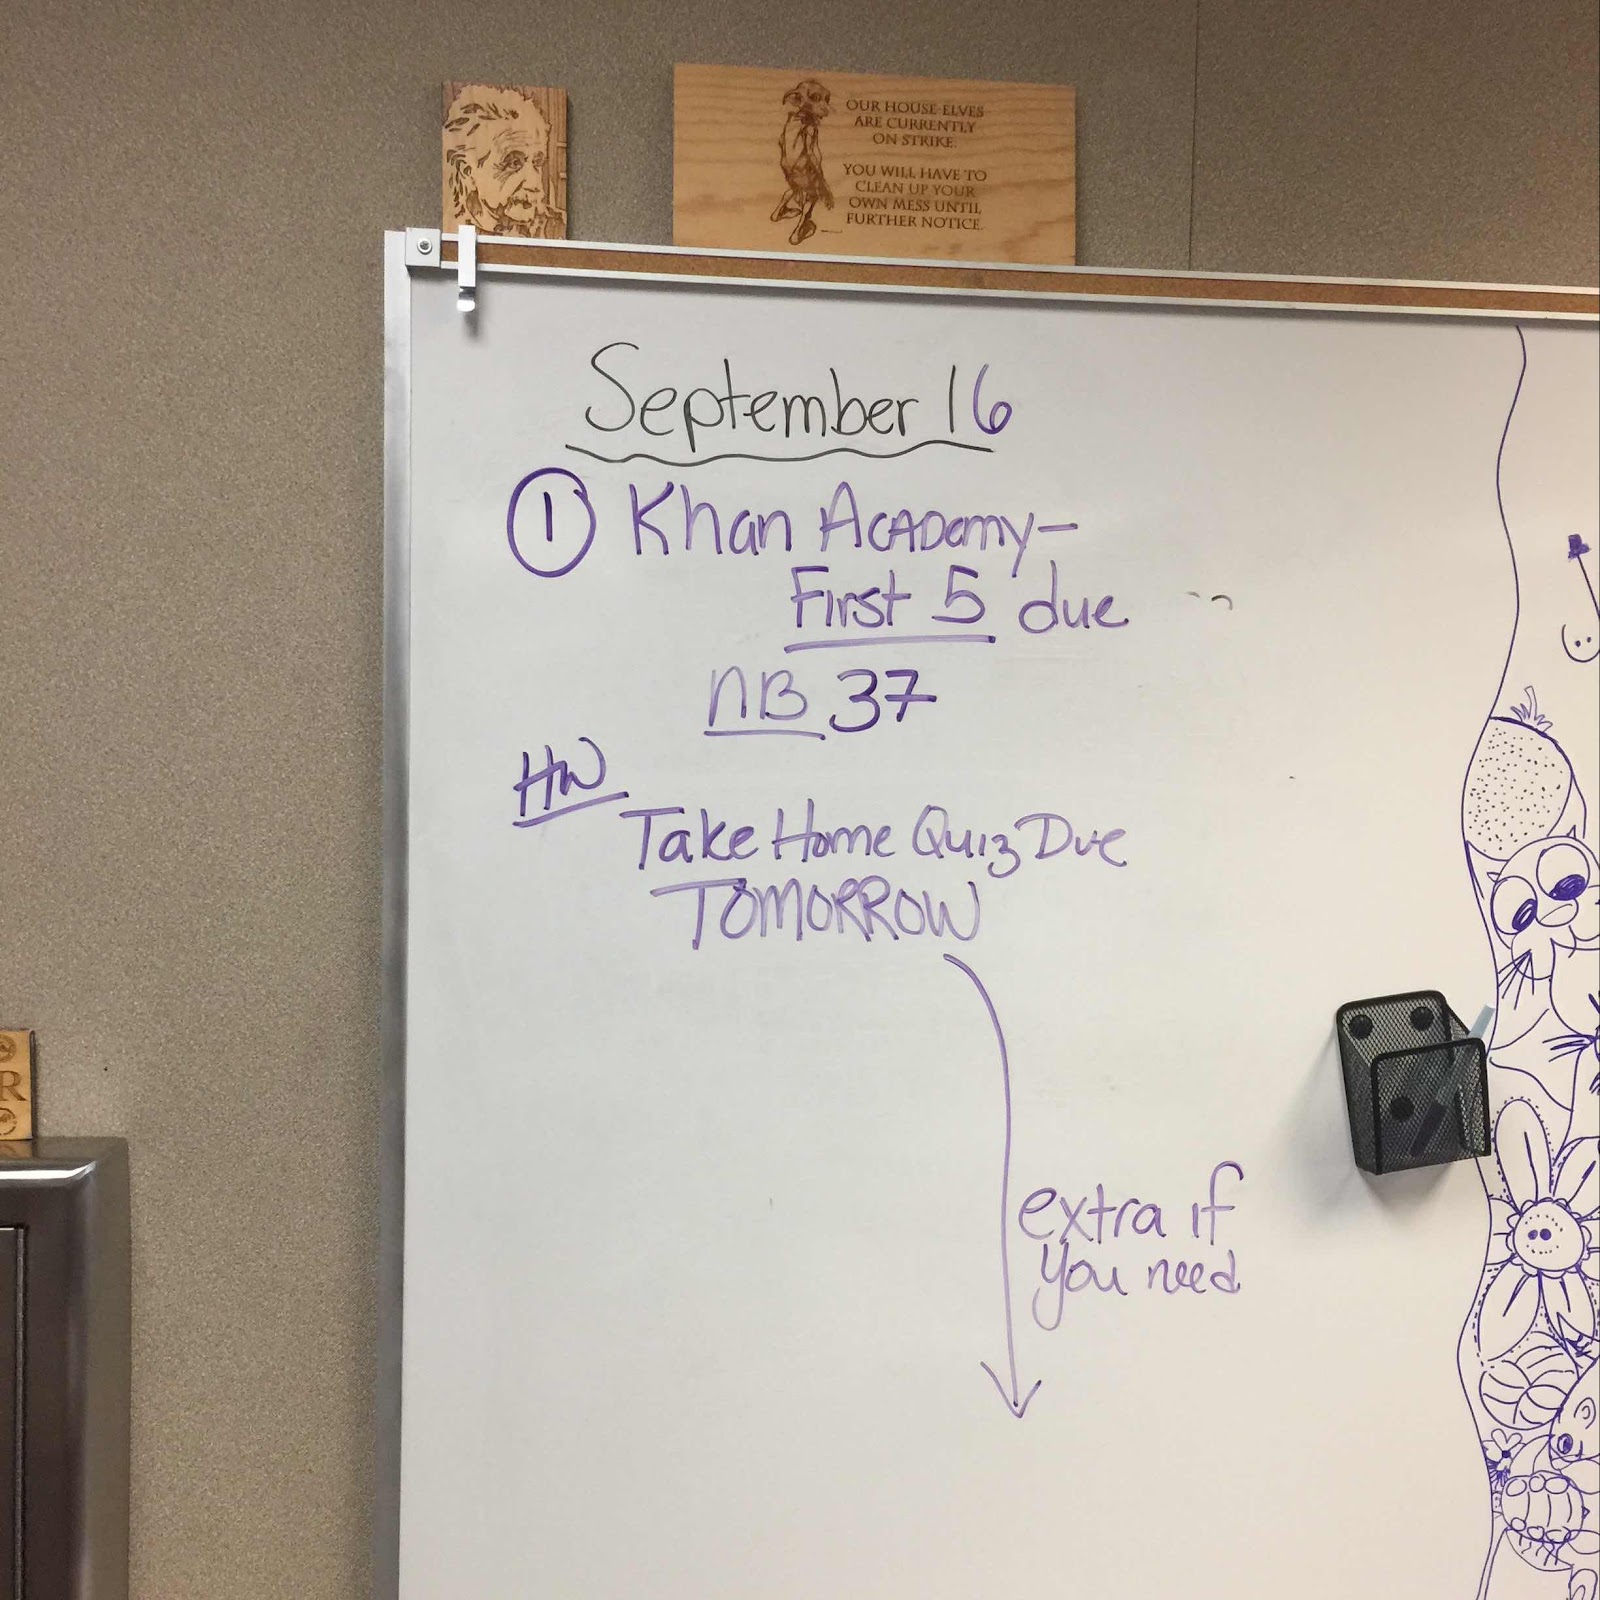 OUR HOUSE-ELVES
ARE CURRENTLY
ON STRIKE.
YOU WILL HAVE TO
CLEAN UP YOUR
OWN MESS UNTIL
FURTHER NOTICE.
September 16
1 Khan Academy-
First 5 due
NB 37
HW
Take Home Quiz Due
TOMORROW
extra if
you need
R